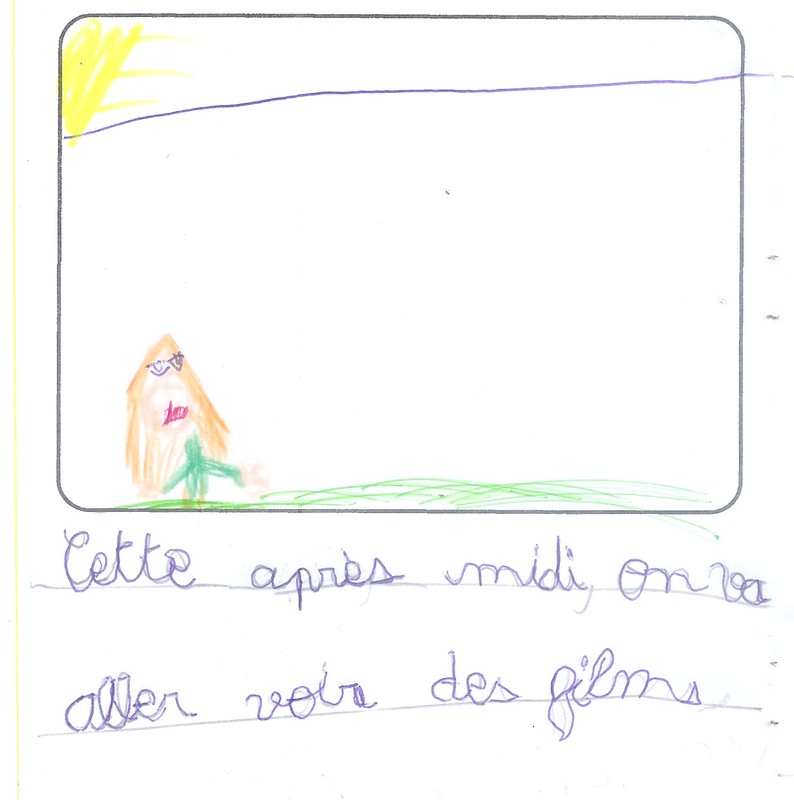 Cette après midi, on va
aller voir des films